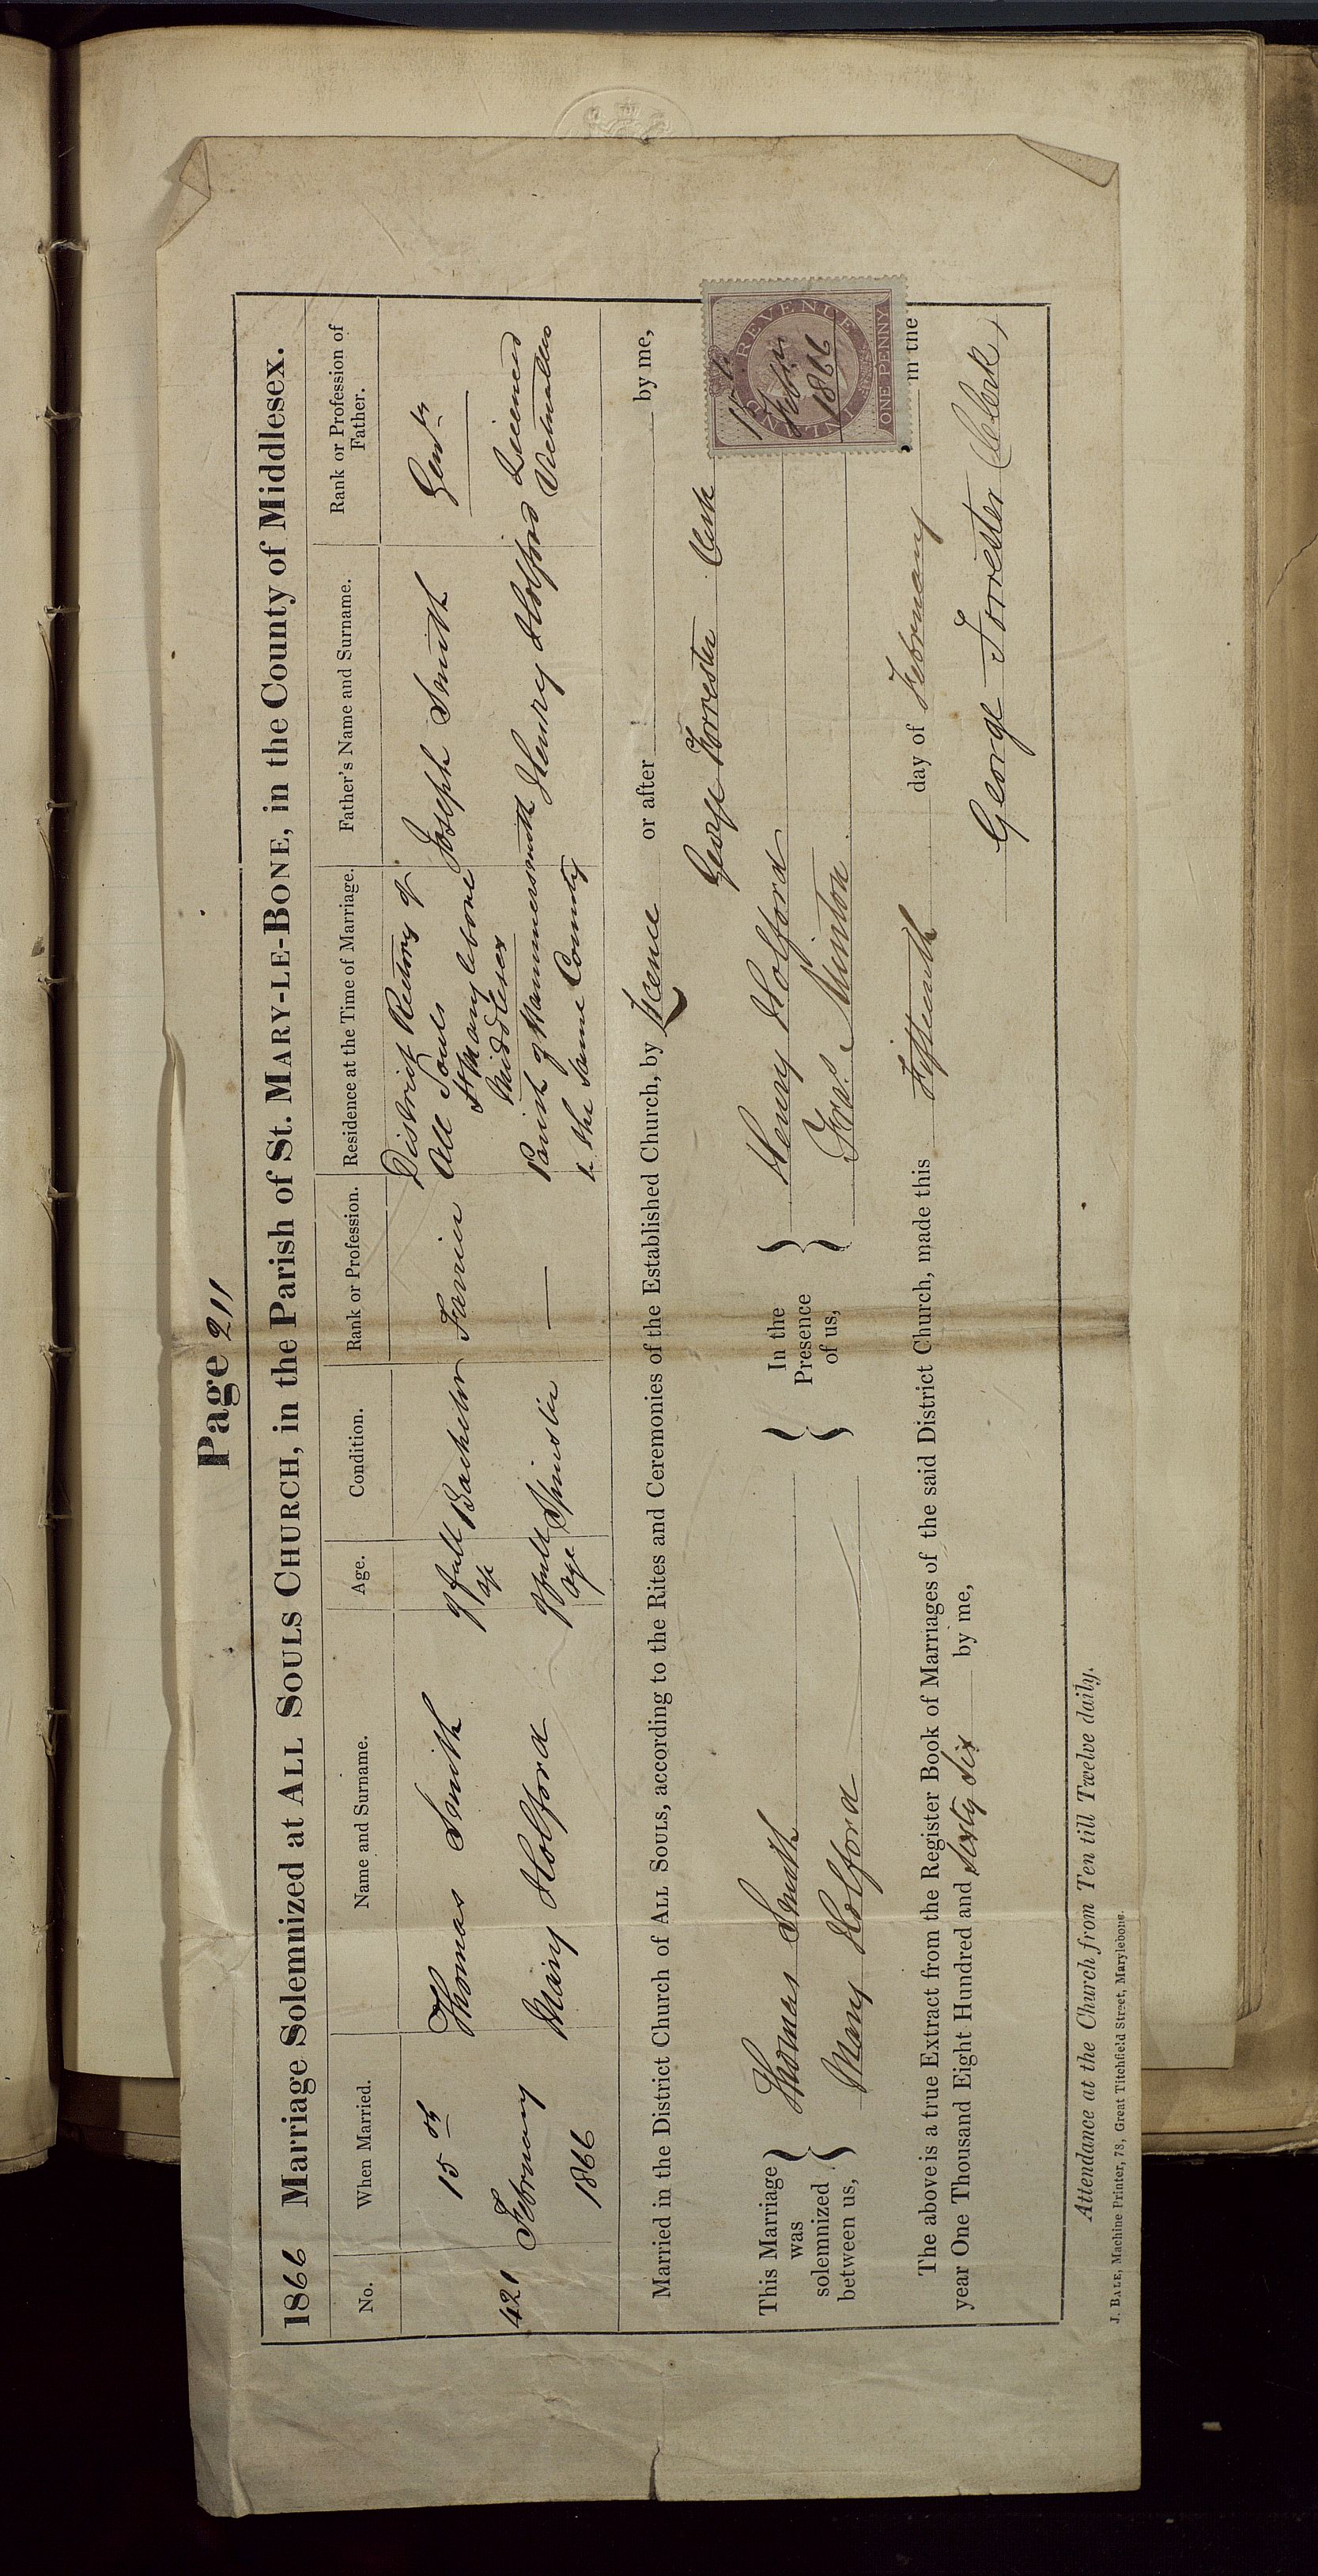 Page 211
1866 Marriage Solemnized at ALL SOULS CHURCH, in the Parish of ST. MARY-LE-BONE, in the County of Middlesex.
No. When Married. Name and Surname. Age. Condition. Rank or Profession. Residence at the Time of Marriage. Father's Name and Surname. Rank or Profession of Father.
421 15th February 1866
Thomas Smith of full age Bachelor Farrier District Rectory of All Souls St Marylebone Middlesex Joseph Smith Gent
Mary Holford of full age Spinster — Parish of Hammersmith in the same County Henry Holford Licensed Victualler
Married in the District Church of ALL SOULS, according to the Rites and Ceremonies of the Established Church, by Licence or after by me,
George Forrester Clerk
This Marriage was solemnized between us, { Thomas Smith
Mary Holford
} In the Presence of us, { Henry Holford
Fras. Minton
The above is a true Extract from the Register Book of Marriages of the said District Church, made this Fifteenth day of February, in the
year One Thousand Eight Hundred and Sixty Six by me,
George Forrester Clerk
INLAND REVENUE
ONE PENNY
15
Feb
1866
Attendance at the Church from Ten till Twelve daily.
J. BALE, Machine Printer, 78, Great Titchfield Street, Marylebone.